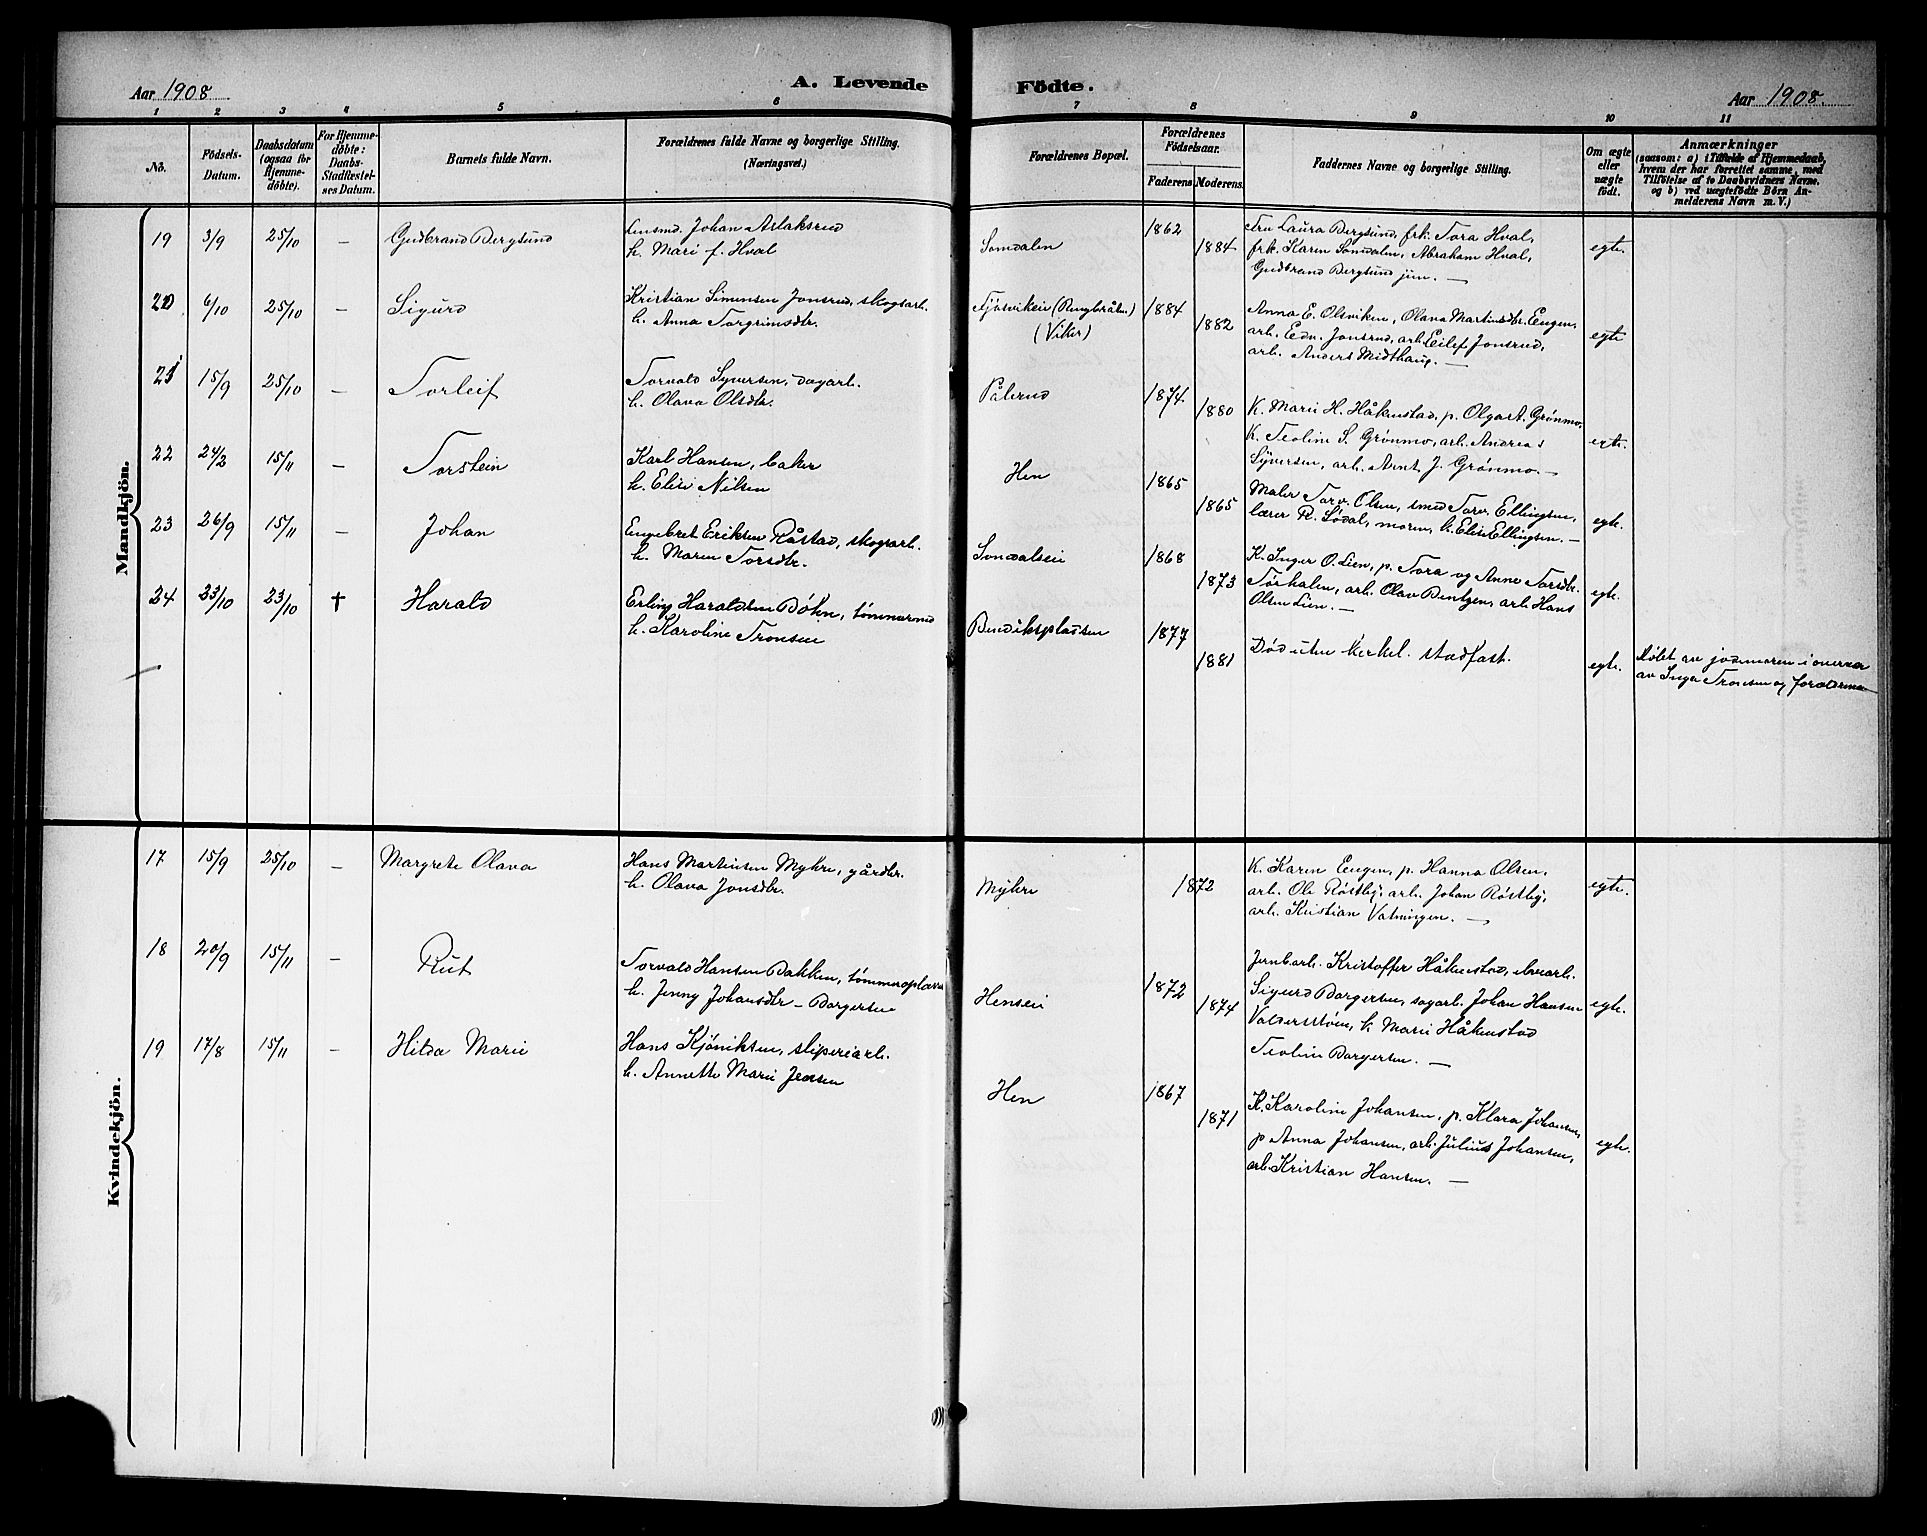 Aar 1908 A. Levende
1 2 3 4 5 6
No. Födsels-Datum. Daabsdatum (ogsaa for Hjemmedöbte). For Hjemmedöbte: Daabs-Stadfæstelses Datum. Barnets fulde Navn. Forældrenes fulde Navne og borgerlige Stilling. (Næringsvei.)
Mandkjön.
19 3/9 25/10 — Gudbrand Bergsund Lensmd. Johan Aslaksrud
h. Mari f. Hval
20 6/10 25/10 — Sigurd Kristian Simensen Jonsrud, skogsarb.
h. Anna Torgrimsdtr.
21 15/9 25/10 — Torleif Torvald Syversen, dagarb.
h. Olava Olsdtr.
22 24/2 15/11 — Torstein Karl Hansen, baker
h. Elise Nilsen
23 26/9 15/11 — Johan Engebret Eriksen Råstad, skogsarb.
h. Maren Torsdtr.
24 23/10 23/10 † Harald Erling Haraldsen Bøhn, tømmermd
h. Karoline Tronsen
Kvindekjön.
17 15/9 25/10 — Margrete Olava Hans Martinsen Myhre, gårdbr.
h. Olava Jonsdtr.
18 20/9 15/11 — Rut Torvald Hansen Bakken,
h. Jenny Johansdtr – Borgersen
19 17/8 15/11 — Hilda Marie Hans Kjøniksen, sliperiarb.
h. Annette Marie Jensen
Födte. Aar 1908.
7 8 9 10 11
Forældrenes Bopæl. Forældrenes Födselsaar. Faderens Moderens. Faddernes Navne og borgerlige Stilling. Om ægte eller uægte födt. Anmærkninger
(saasom: a) i Tilfælde af Hjemmedaab, hvem der har forrettet samme, med Tilföielse af to Daabsvidners Navne. og b) ved uægtefödte Börn Anmelderens Navn m. V.)
Somdalen 1862 1884 Fru Laura Bergsund, frk. Tora Hval,
frk. Karen Somdalen, Abraham Hval, egte.
Gudbrand Bergsund jun. —
(Viker) 1884 1882 Anna E. Olsviken, Olava Martinsdtr. Eengen,
arb. Edv. Jonsrud, arb. Eilef Jonsrud, egte
arb. Anders Midthaug. —
Pålerud 1874 1880 K. Marie H. Håkenstad, p. Olga A. Grønmo,
K. Teoline S. Grønmo, arb. Andreas egte.
Syversen, arb. Arnt J. Grønmo. —
Hen 1865 1865 Maler Torv. Olsen, smed Torv. Ellingsen,
lærer R. Sødal, moren, k. Elise Ellingsen. — egte.
Somdalseie 1868 1873 K. Inger O. Lien, p. Tora og Anne Torsdtr.
Tørhalen, arb. Olav Bentzen, arb. Hans egte.
Olsen Lien. —
Bendiksplassen 1877 1881 Død uten kirkel. stadfæst. egte. Døbt av jodmoren i overvær
av Inga Tronsen og forældrene
Myhre 1872 K. Karen Eengen, p. Hanna Olsen,
arb. Ole Røstby, arb. Johan Røstby, egte.
arb. Kristian Vatningen. —
Henseie 1872 1874 Jernb.arb. Kristoffer Håkenstad,
Sigurd Borgersen, sagarb. Johan Hansen egte.
k. Marie Håkenstad
Teoline Borgersen. —
Hen 1867 1871 K. Karoline Johansen, p. Klara Johansen,
p Anna Johansen, arb. Julius Johansen, egte.
arb. Kristian Hansen. —